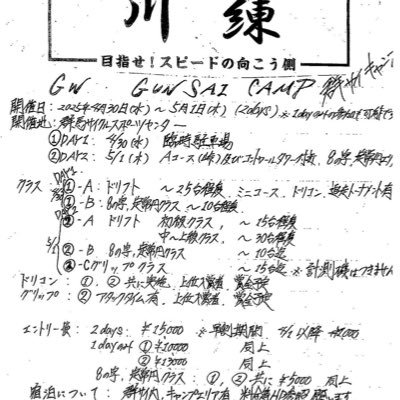 訓練
目指せ!スピードの向こう側
GW GUNSAI CAMP 群サイキャンプ
開催日:2025年4月30日(水)~5月1日(木)(2days) ※1dayのみの参加も可能です
開催地:群馬サイクルスポーツセンター
①DAY1: 4/30(水) 臨時駐車場
②DAY2: 5/1(木) Aコース(峠)及びコントロールタワー 8の字,定常円
クラス ①-A:ドリフト ~25台程度 ミニコース、ドリコン、追走トーナメント有
①-B:8の字,定常円クラス ~10台程度
5/1 ②-A ドリフト 初級クラス、~15台程度
中~上級クラス、~30台程度
②-B 8の字,定常円クラス ~10台迄
②-Cグリップクラス ~15台迄 ※計測機は
ドリコン:①、②共に実施、上位入賞者、賞金予定
グリップ:②アタックタイム有、上位入賞者、賞金予定
エントリー費: 2days: ¥15000 ※早割期間
1dayonly ①¥10000 同上
②¥13000 同上
8の字,定常円クラス:①、②共に¥5000 同上
宿泊について:群サイ内、キャンプエリア有